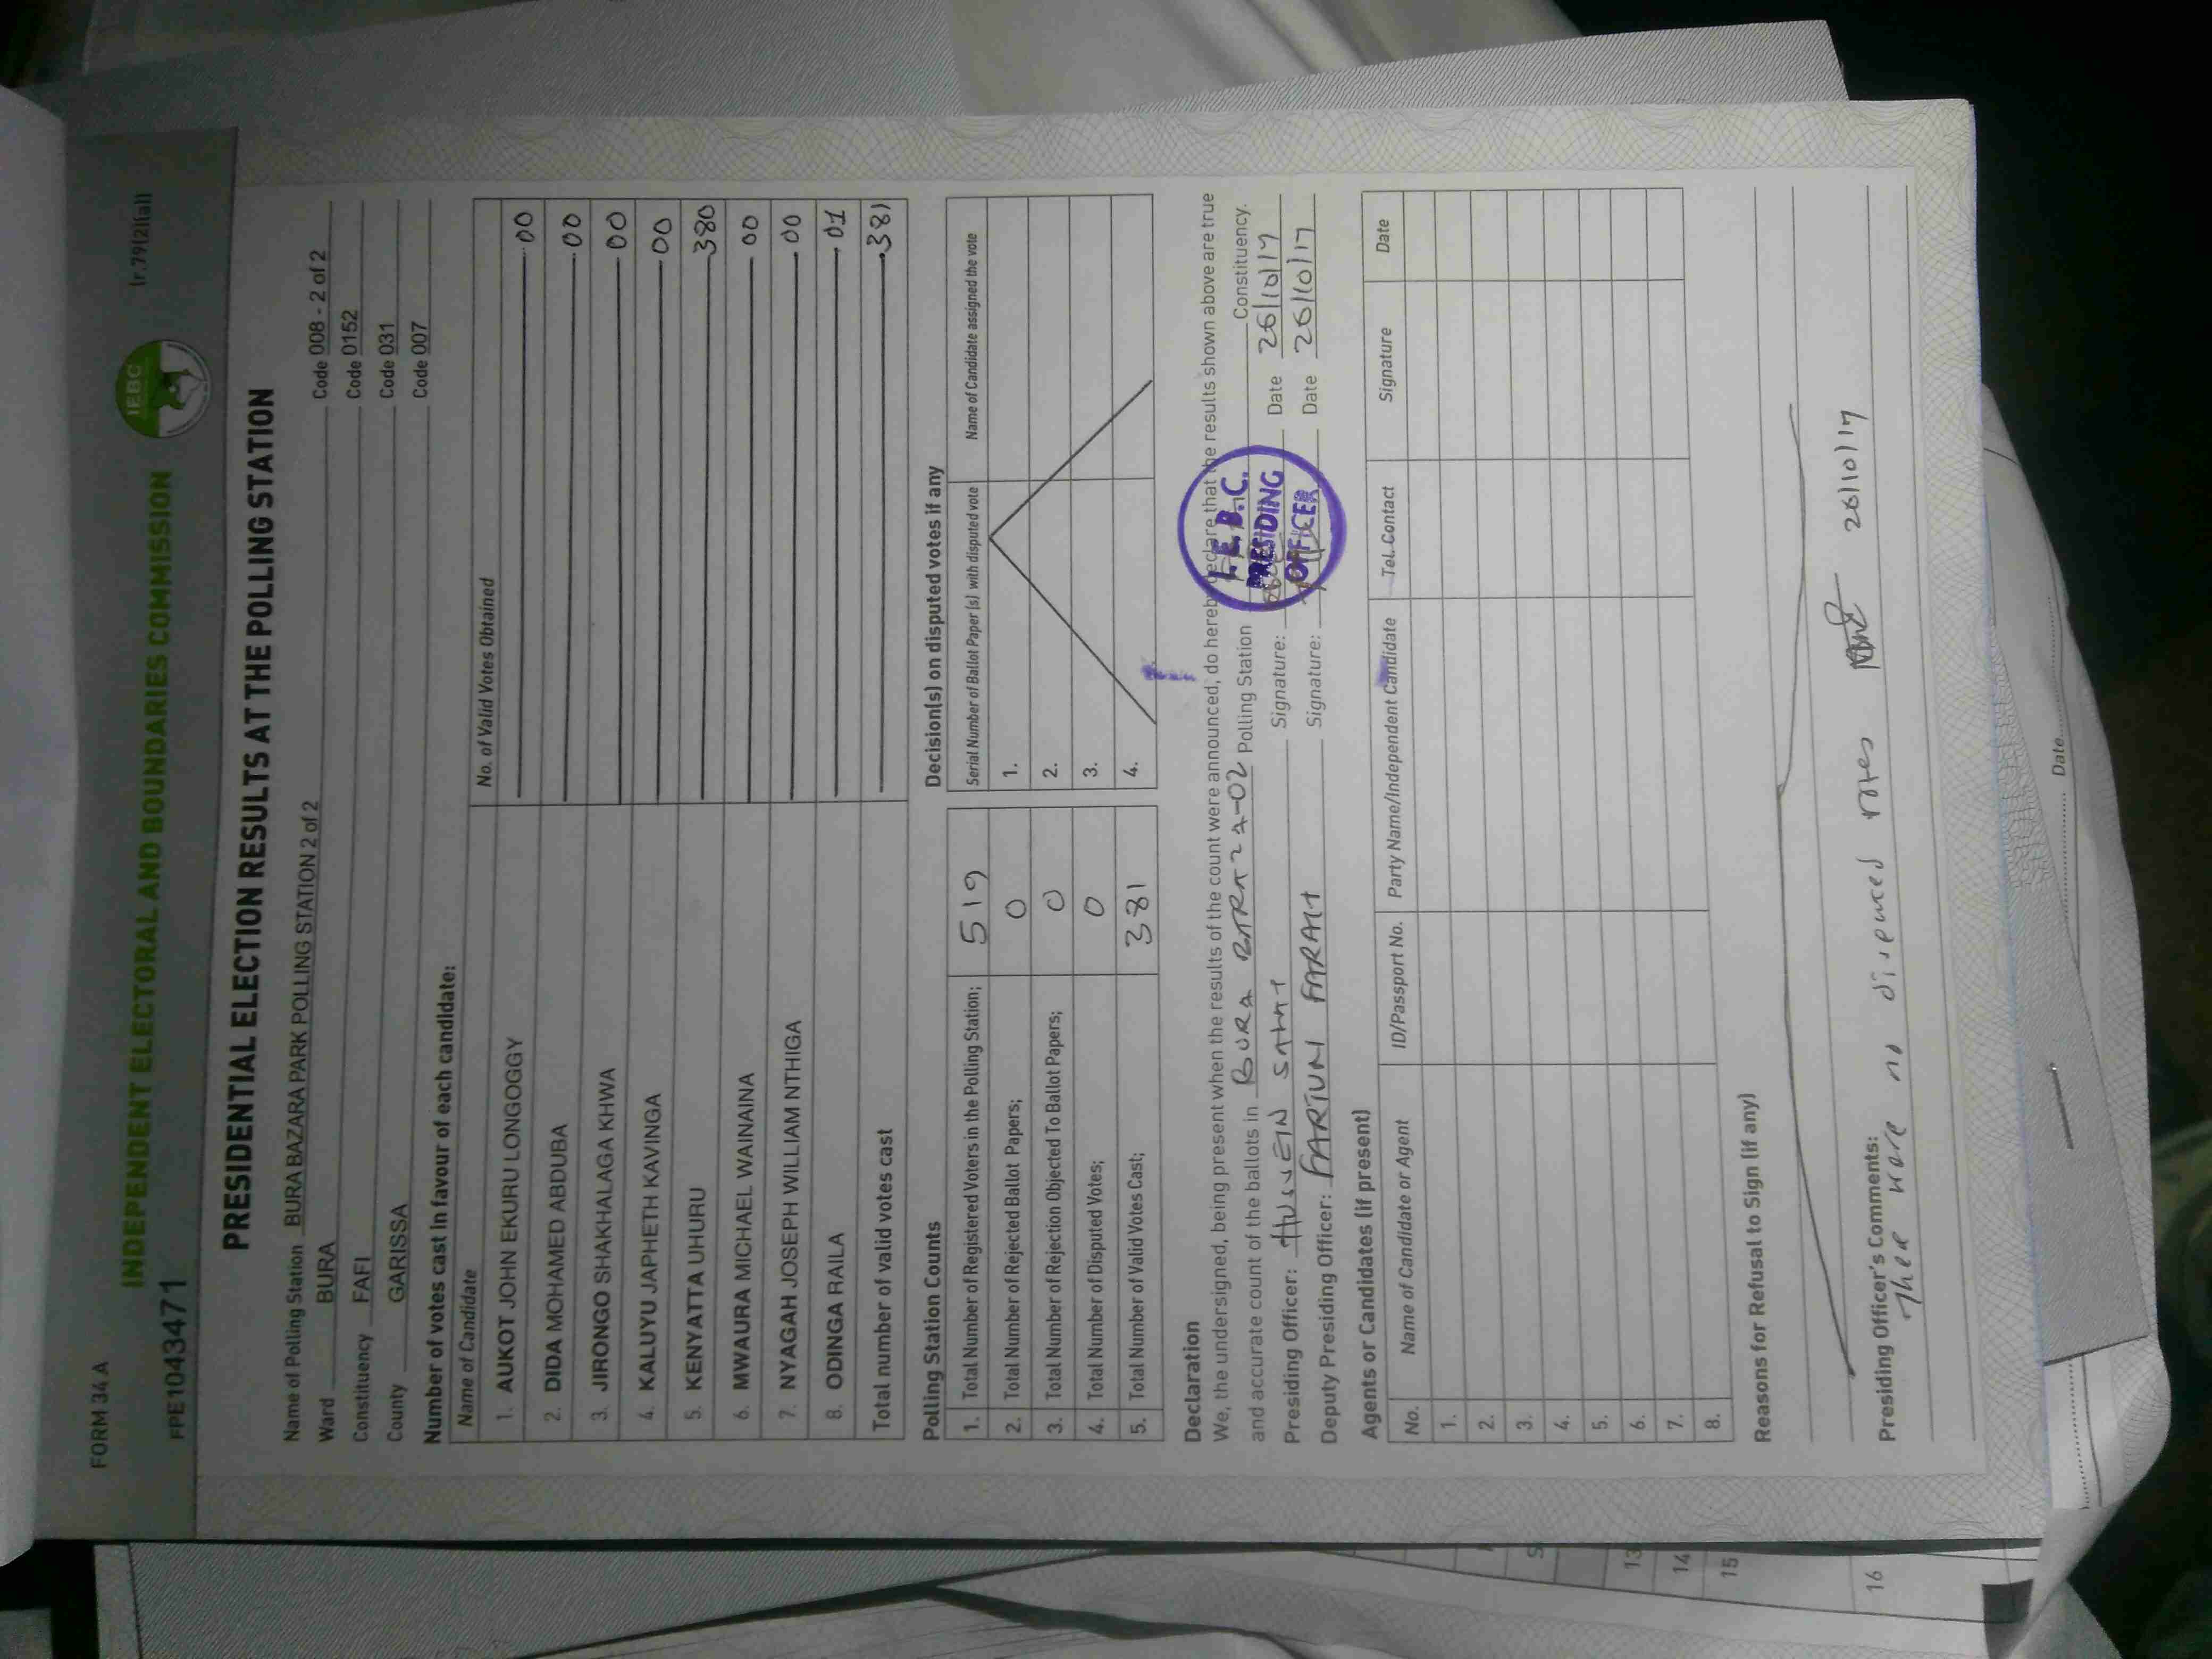 FORM 34 A
(r.79(2)(a))
INDEPENDENT ELECTORAL AND BOUNDARIES COMMISSION
IEBC
FPE1043471
PRESIDENTIAL ELECTION RESULTS AT THE POLLING STATION
Name of Polling Station BURA BAZARA PARK POLLING STATION 2 of 2 Code 008 - 2 of 2
Ward BURA Code 0152
Constituency FAFI Code 031
County GARISSA Code 007
Number of votes cast in favour of each candidate:
Name of Candidate No. of Valid Votes Obtained
1. AUKOT JOHN EKURU LONGOGGY 00
2. DIDA MOHAMED ABDUBA 00
3. JIRONGO SHAKHALAGA KHWA 00
4. KALUYU JAPHETH KAVINGA 00
5. KENYATTA UHURU 380
6. MWAURA MICHAEL WAINAINA 00
7. NYAGAH JOSEPH WILLIAM NTHIGA 00
8. ODINGA RAILA 01
Total number of valid votes cast 381
Polling Station Counts
1. Total Number of Registered Voters in the Polling Station; 519
2. Total Number of Rejected Ballot Papers; 0
3. Total Number of Rejection Objected To Ballot Papers; 0
4. Total Number of Disputed Votes; 0
5. Total Number of Valid Votes Cast; 381
Decision(s) on disputed votes if any
Serial Number of Ballot Paper (s) with disputed vote Name of Candidate assigned the vote
1.
2.
3.
4.
Declaration
We, the undersigned, being present when the results of the count were announced, do hereby declare that the results shown above are true
and accurate count of the ballots in BURA -02 Polling Station Constituency.
Presiding Officer: Signature: Date 26/10/17
Deputy Presiding Officer: FARTUN FARAH Signature: Date 26/10/17
I.E.B.C.
PRESIDING
OFFICER
Agents or Candidates (if present)
No. Name of Candidate or Agent ID/Passport No. Party Name/Independent Candidate Tel. Contact Signature Date
1.
2.
3.
4.
5.
6.
7.
8.
Reasons for Refusal to Sign (if any)
Presiding Officer's Comments:
Ther were no 26/10/17
Date
13
14
15
16